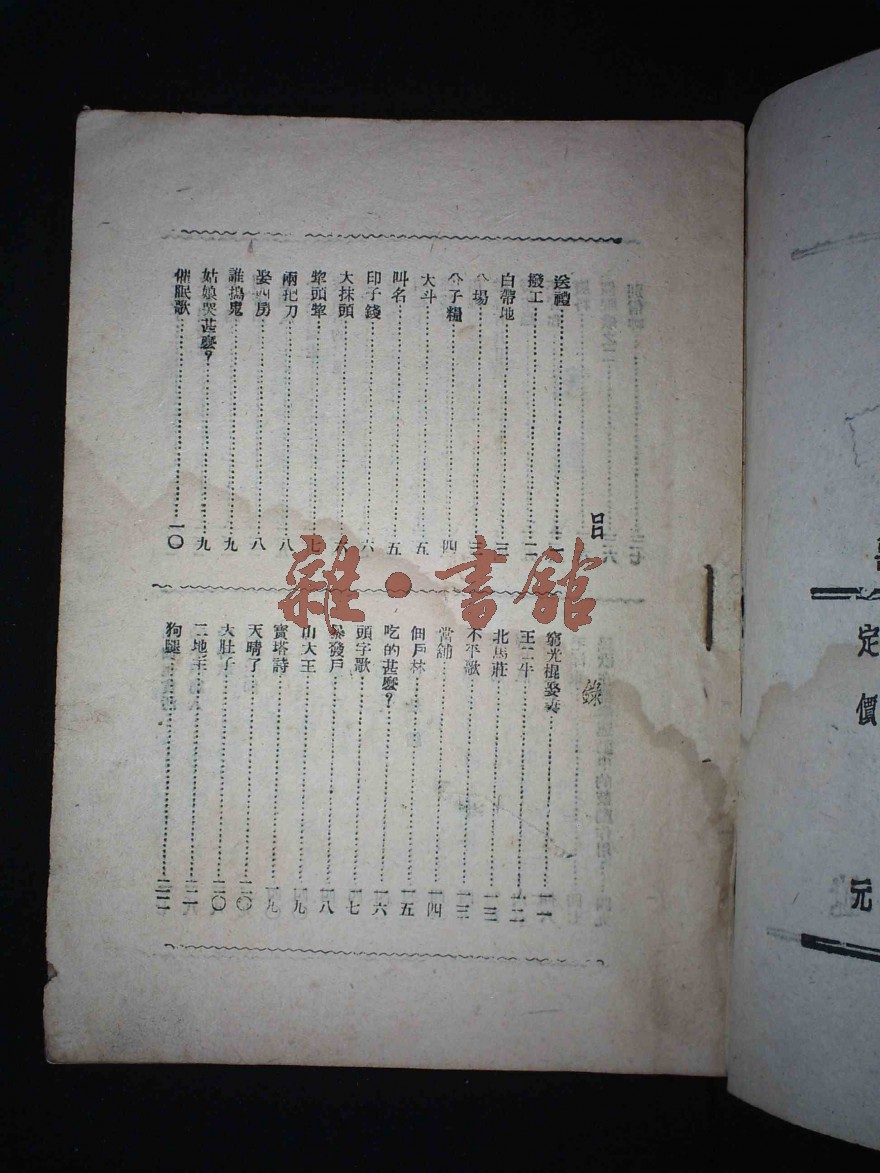 目錄
送禮……一
撥工……二
白帶地……三
公場……三
公子糧……四
大斗……五
叫名……五
印子錢……六
大抹頭……六
犂頭犂……七
兩把刀……八
娶四房……八
誰搗鬼……九
姑娘哭甚麽？……九
催眠歌……一〇
窮光棍娶妻……一一
王二牛……一二
北馬莊……一三
不平歌……一三
當舖……一四
佃戶林……一五
吃的甚麽？……一六
頭字歌……一七
暴發戶……一八
山大王……一九
寶塔詩……一九
天晴了……二〇
大肚子……二〇
二地主……二一
狗腿……二二
雜·書舘
定價
元